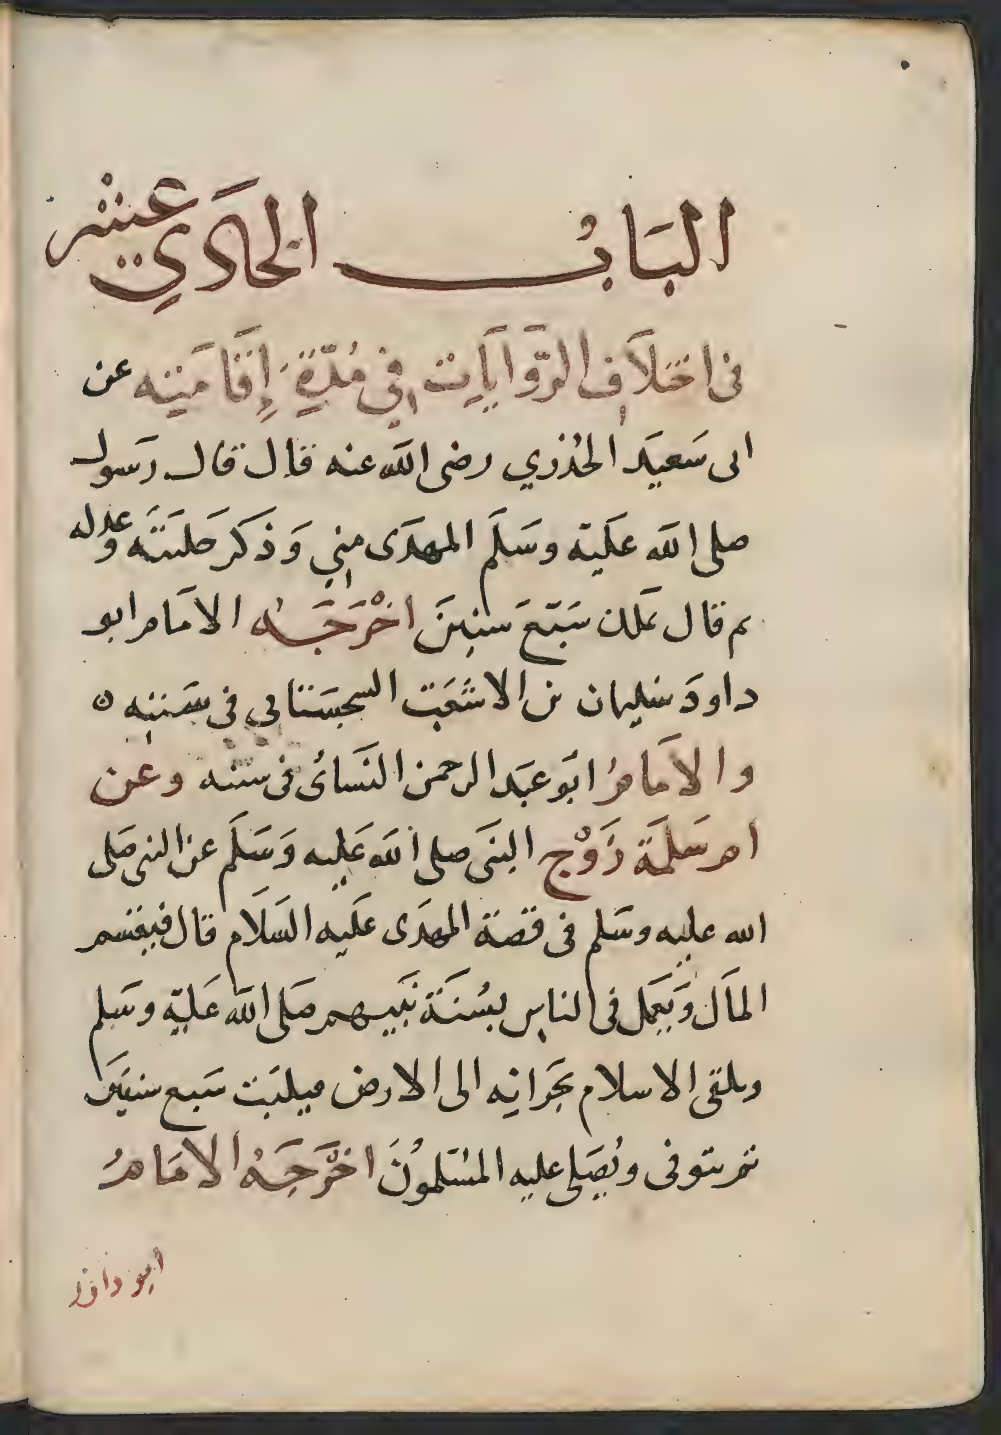 الباب الحادي عشر
في اختلاف الروايات في مدة إقامته عن
ابى سعيد الخدري رضى الله عنه قال قال رسول
صلى الله عليه وسلم المهدى مني وذكر حليته وعدله
ثم قال يملك سبع سنين اخرجه الامام ابو
داود سليمان بن الاشعث السجستاني في سننه ٥
والامام ابو عبد الرحمن النسائ فى سننه وعن
ام سلمة زوج النبى صلى الله عليه وسلم عن النبى صلى
الله عليه وسلم فى قصة المهدى عليه السلام قال فيقسم
المال ويعمل فى الناس بسنة نبيهم صلى الله عليه وسلم
ويلقى الاسلام بجرانه الى الارض فيلبث سبع سنين
ثم يتوفى ويصلى عليه المسلمون اخرجه الامام
ابو داود